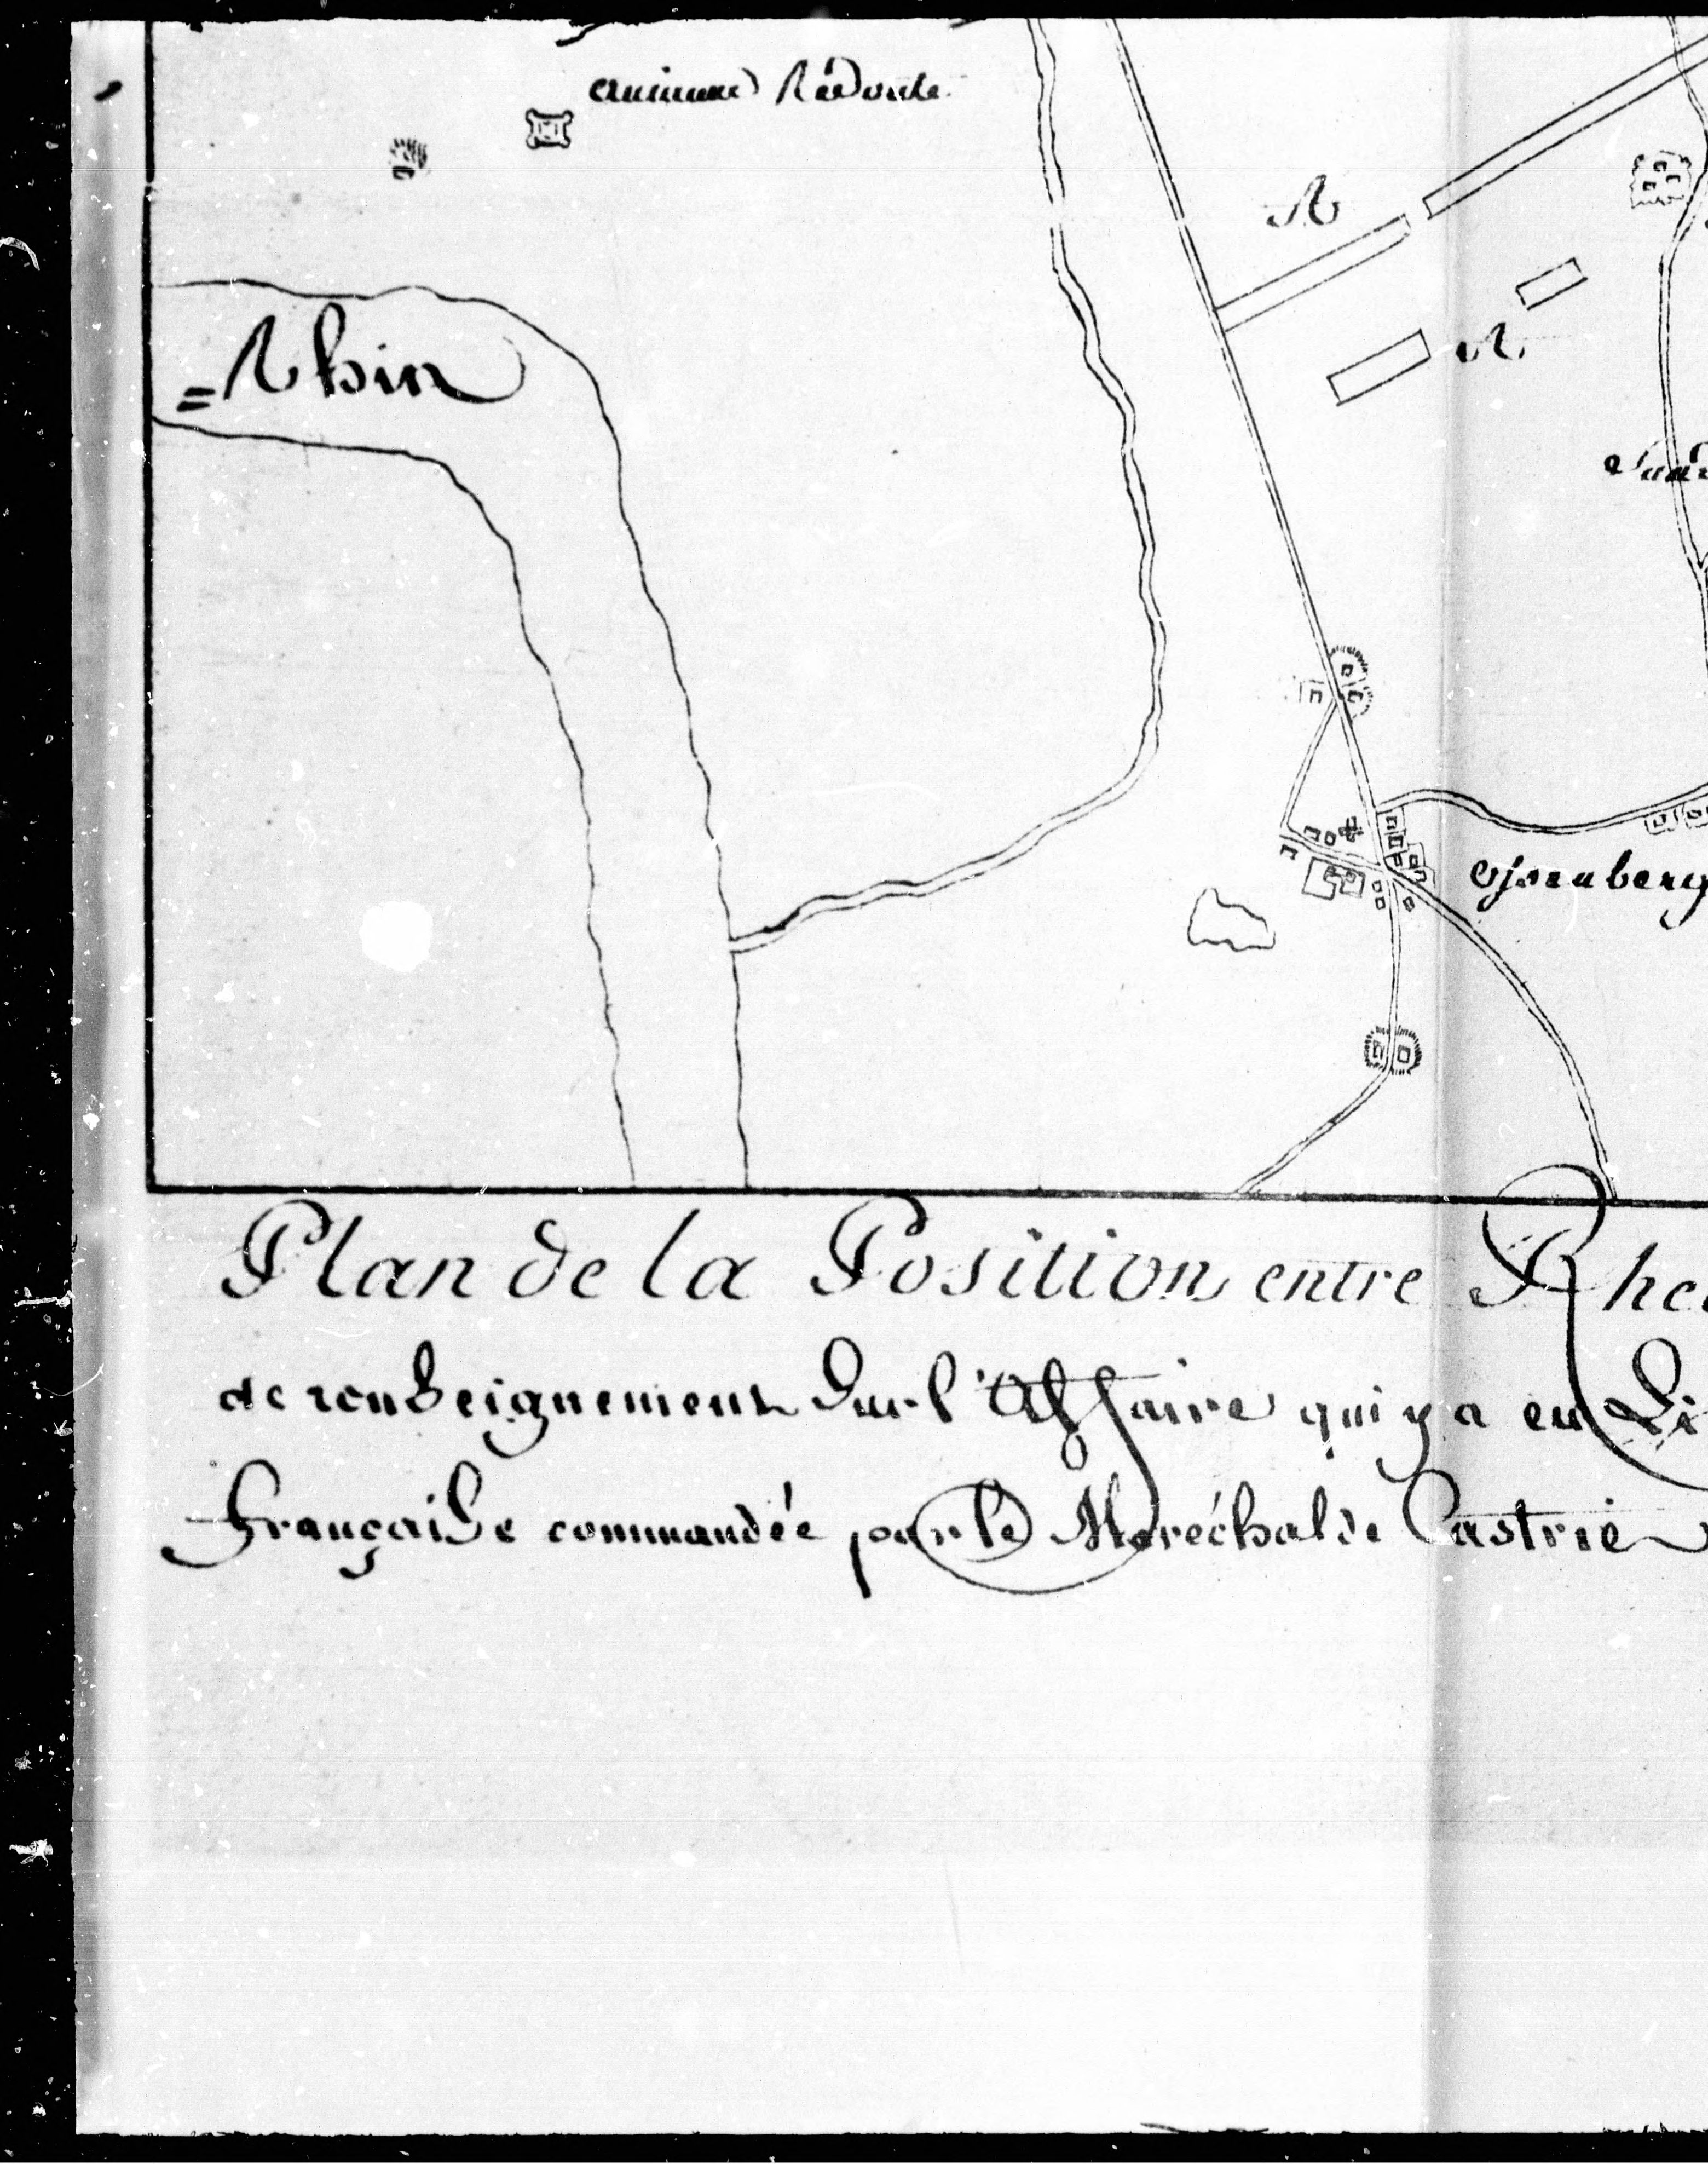 ancienne Rédoute.
A
= Rhin
A
Ossenberg
Plan de la Position entre Rhe
de renseignement sur l'Affaire qui y a eu Li
Française commandée par le Maréchal de Castrie